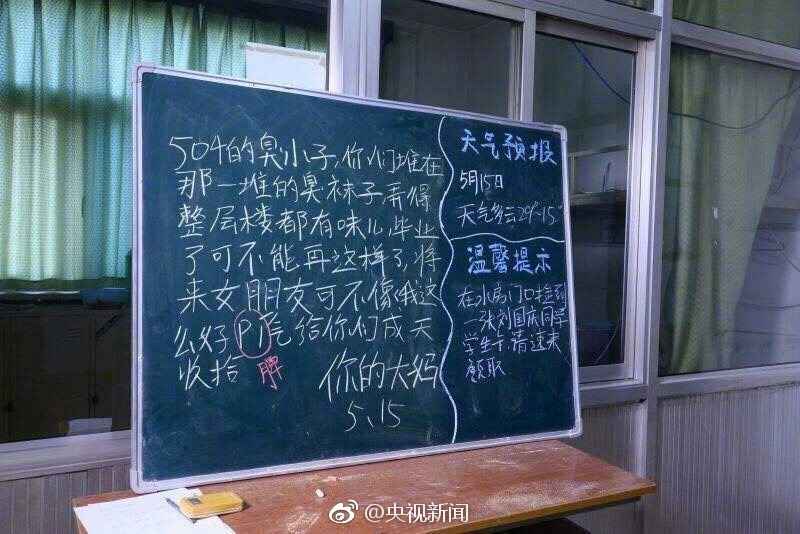 504的臭小子,你们堆在
那一堆的臭袜子弄得
整层楼都有味儿,毕业
了可不能再这样了,将
来女朋友可不像俄这
么好Pi气给你们成天
收拾 脾
你的大妈
5、15
天气预报
5月15日
天气多云29°~15°
温馨提示
在水房门口捡到
一张刘国庆同学
学生卡,请速来
领取
@央视新闻